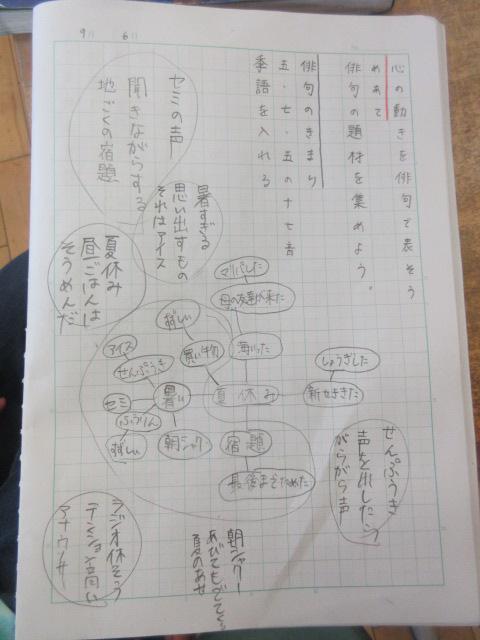 9月 6日
心の動きを俳句で表そう
めあて
俳句の題材を集めよう。
俳句のきまり
五・七・五の十七音
季語を入れる
セミの声
聞きながらする
地ごくの宿題
暑すぎる
思い出すもの
それはアイス
夏休み
昼ごはんは
そうめんだ
マリパした
母の友達が来た
海いった
買い物
すずしい
アイス
せんぷうき
セミ
ふうりん
すずしい
暑い
朝シャワー
夏休み
宿題
最後までためた
しょうぎした
せんぷうき
声を出したら
がらがら声
朝シャワー
あびてもでてくる
夏のあせ
ラジオ体そう
テンション高い
アナウンサー